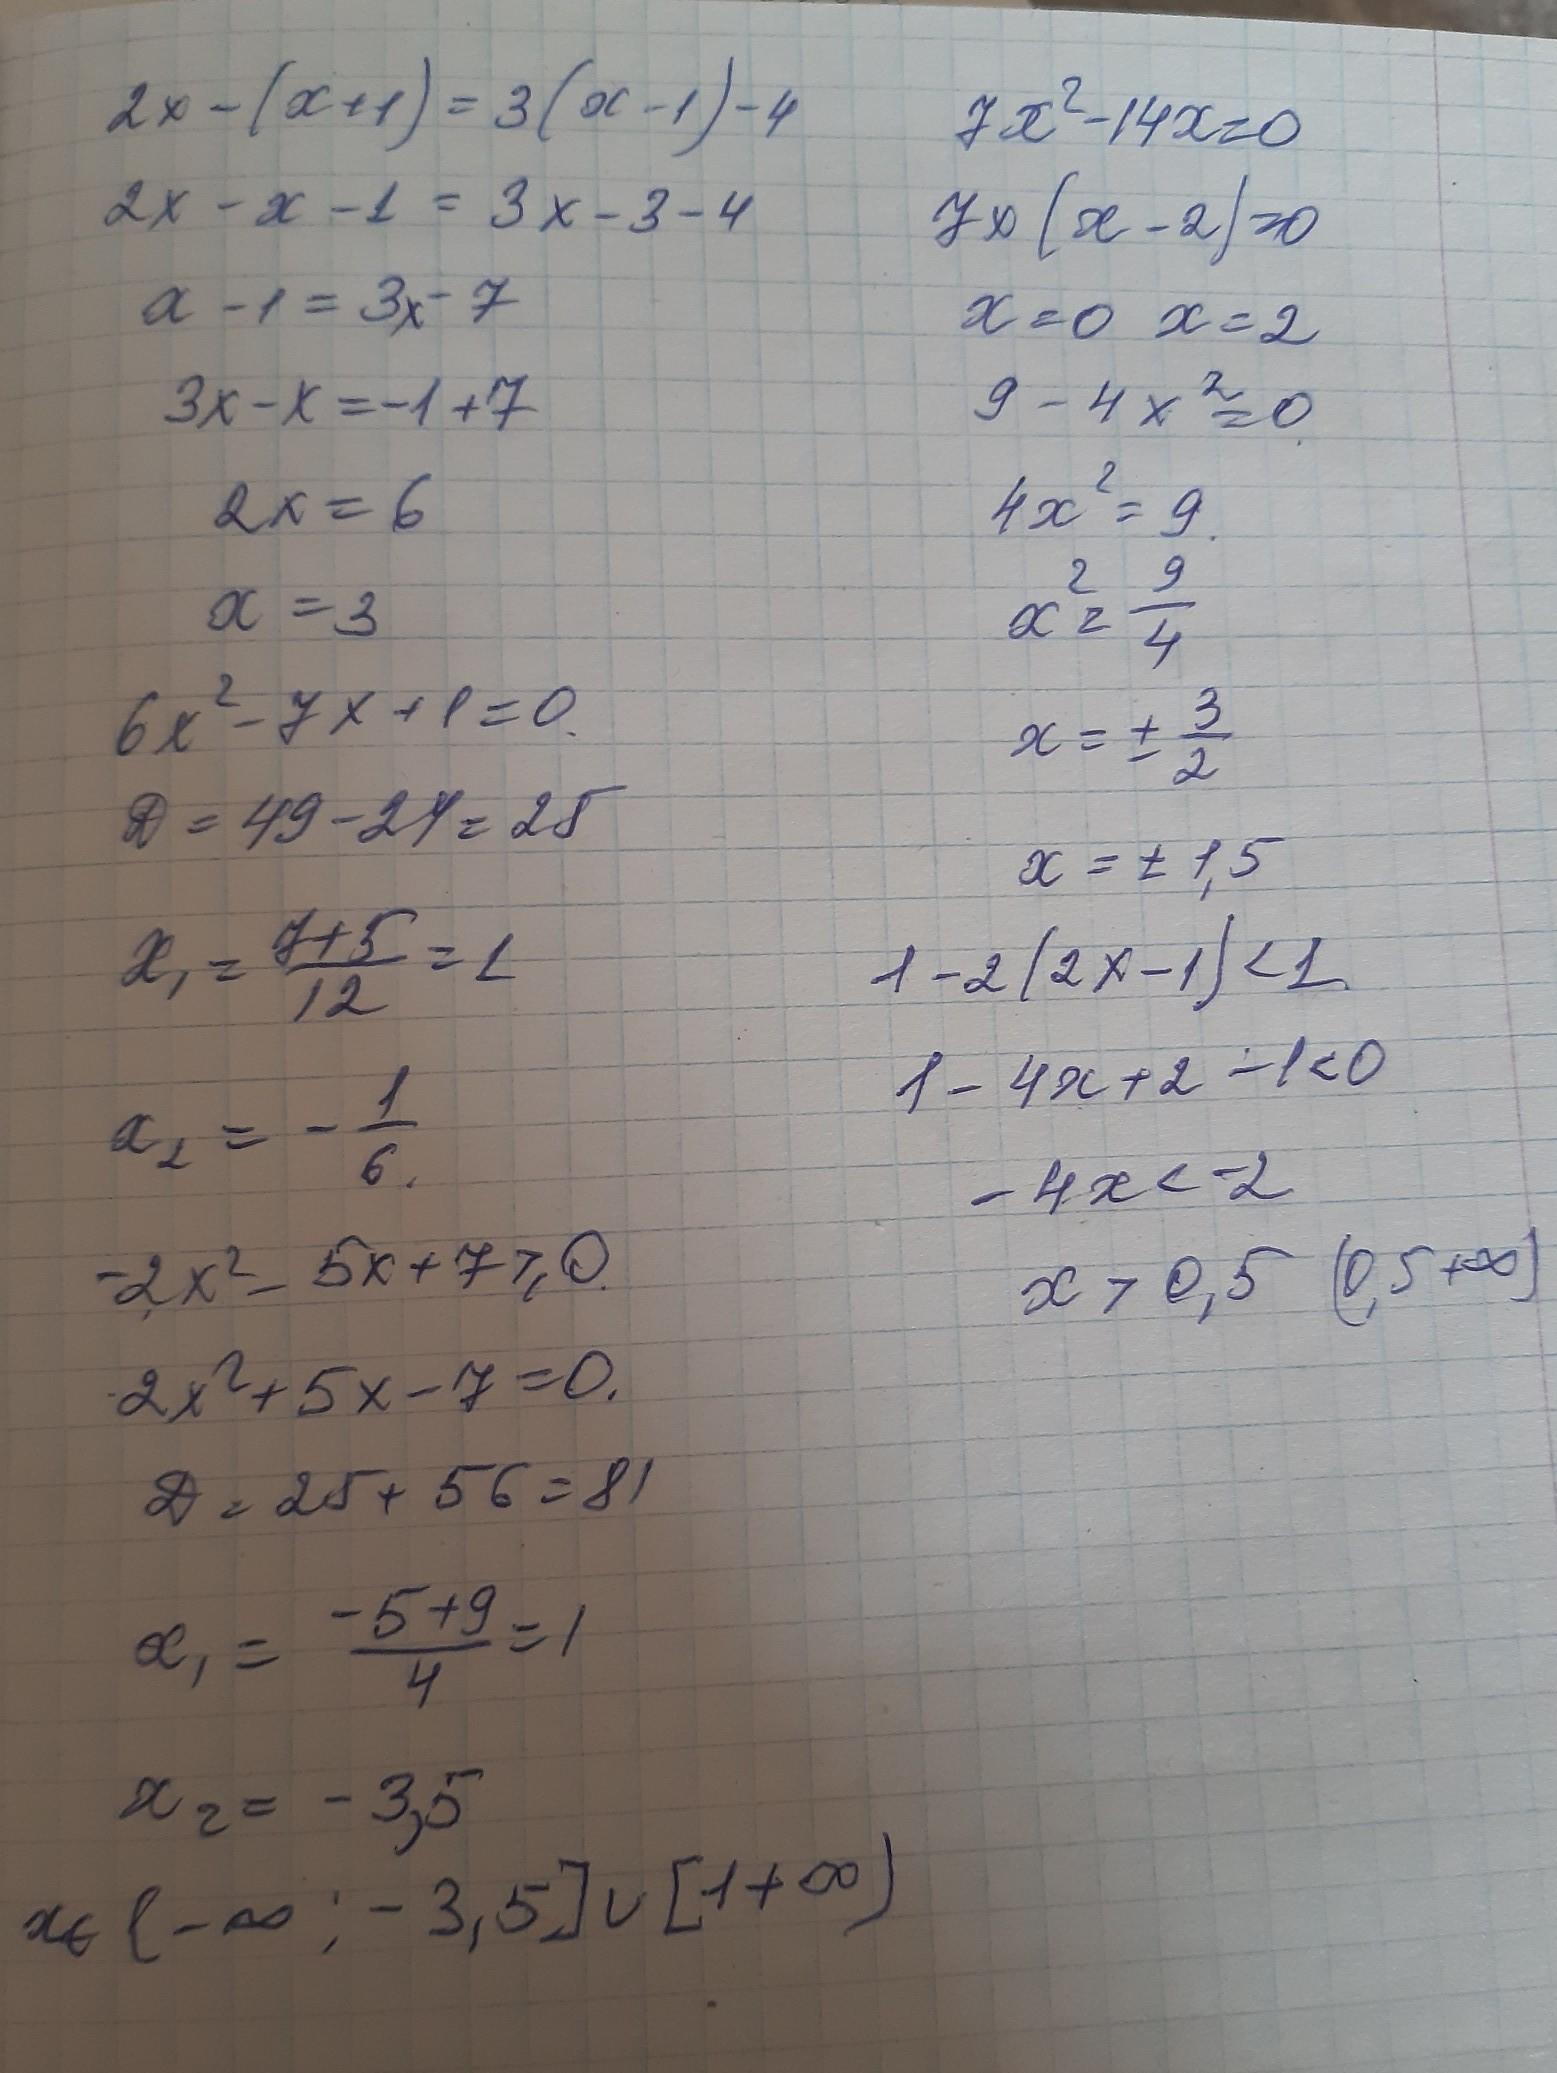 2x - (x+1) = 3(x-1) - 4
2x - x - 1 = 3x - 3 - 4
x - 1 = 3x - 7
3x - x = -1 + 7
2x = 6
x = 3
6x² - 7x + 1 = 0.
D = 49 - 24 = 25
x₁ = (7+5)/12 = 1
x₂ = - 1/6.
-2x² - 5x + 7 ≥ 0.
2x² + 5x - 7 = 0.
D = 25 + 56 = 81
x₁ = (-5+9)/4 = 1
x₂ = - 3,5
x ∈ (-∞ ; - 3,5] ∪ [1 + ∞)
7x² - 14x = 0
7x (x - 2) = 0
x = 0 x = 2
9 - 4x² = 0.
4x² = 9.
x² = 9/4
x = ± 3/2
x = ± 1,5
1 - 2(2x - 1) < 1
1 - 4x + 2 - 1 < 0
- 4x < -2
x > 0,5 (0,5 +∞)